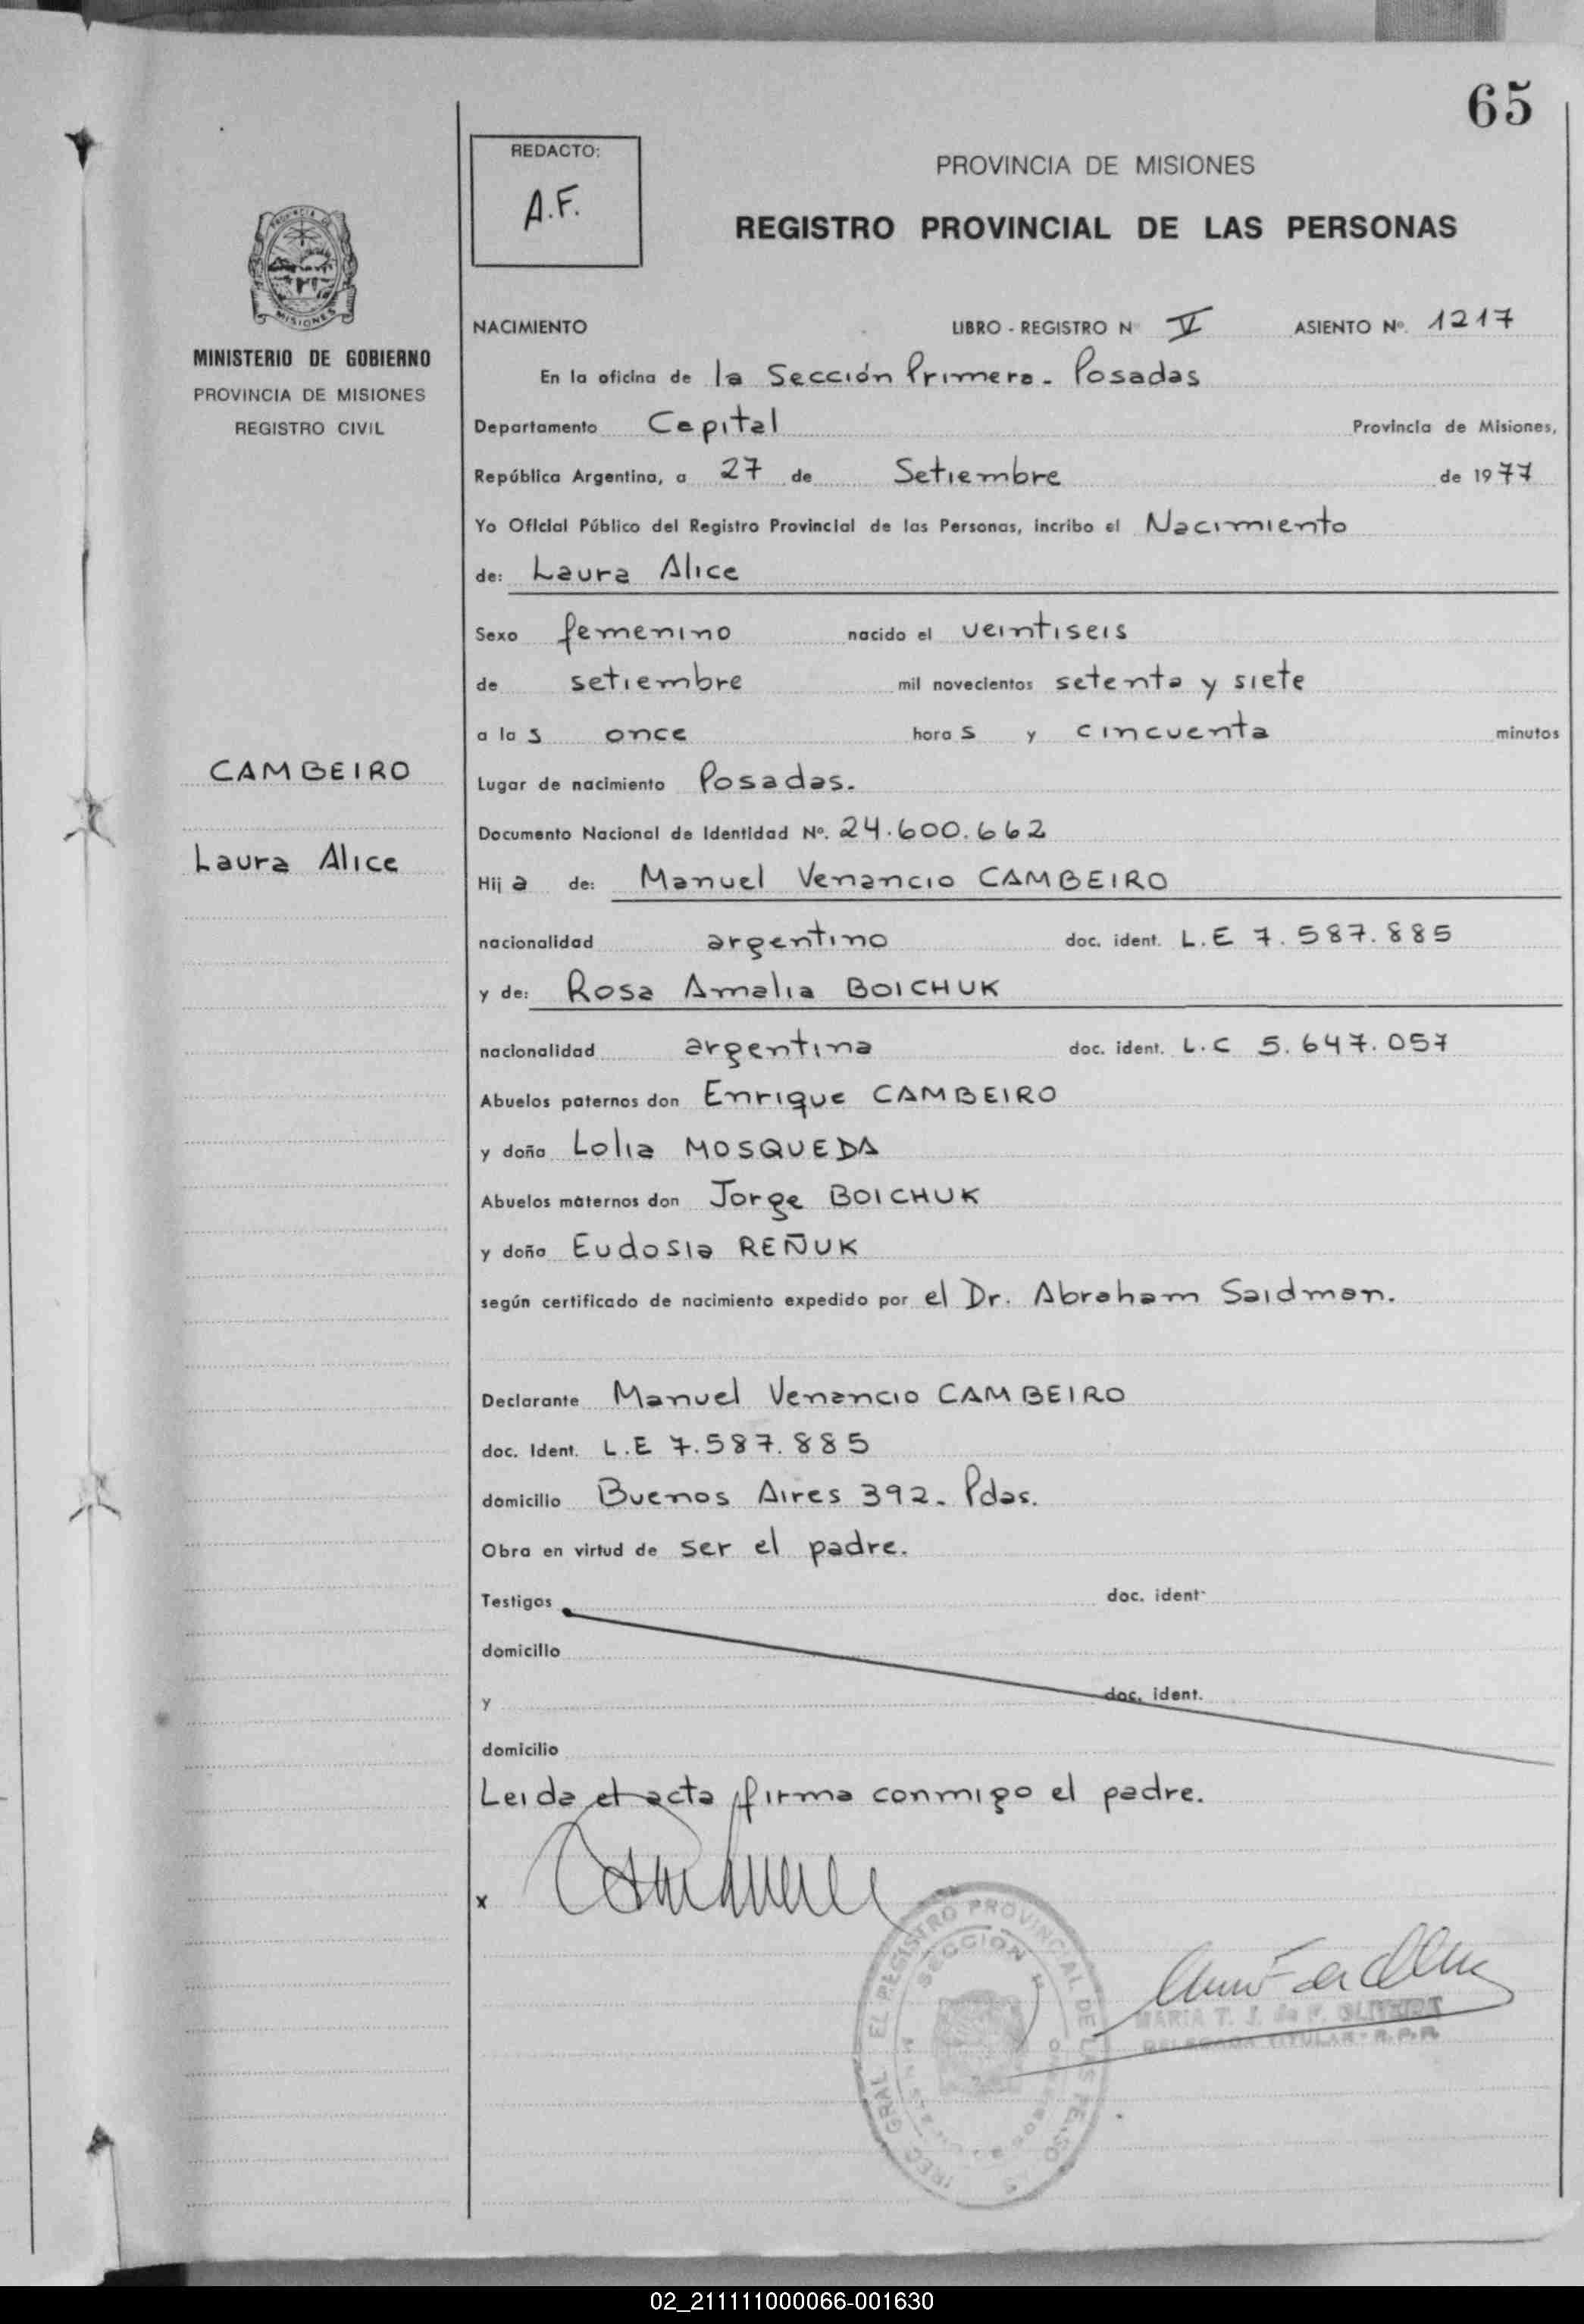 65
REDACTO:
A.F.
PROVINCIA DE MISIONES
REGISTRO PROVINCIAL DE LAS PERSONAS
MISIONES
MINISTERIO DE GOBIERNO
PROVINCIA DE MISIONES
REGISTRO CIVIL
CAMBEIRO
Laura Alice
NACIMIENTO LIBRO - REGISTRO Nº V ASIENTO Nº. 1217
En la oficina de la Sección Primera - Posadas
Departamento Capital Provincia de Misiones,
República Argentina, a 27 de Setiembre de 1977
Yo Oficial Público del Registro Provincial de las Personas, incribo el Nacimiento
de: Laura Alice
Sexo femenino nacido el veintiseis
de setiembre mil novecientos setenta y siete
a las once horas y cincuenta minutos
Lugar de nacimiento Posadas.
Documento Nacional de Identidad Nº. 24.600.662
Hija de: Manuel Venancio CAMBEIRO
nacionalidad argentino doc. ident. L.E 7.587.885
y de: Rosa Amalia BOICHUK
nacionalidad argentina doc. ident. L.C 5.647.057
Abuelos paternos don Enrique CAMBEIRO
y doña Lolia MOSQUEDA
Abuelos maternos don Jorge BOICHUK
y doña Eudosia REÑUK
según certificado de nacimiento expedido por el Dr. Abraham Saidman.
Declarante Manuel Venancio CAMBEIRO
doc. Ident. L.E 7.587.885
domicilio Buenos Aires 392 - Pdas.
Obra en virtud de ser el padre.
Testigos doc. ident.
domicilio
y doc. ident.
domicilio
Leida el acta firma conmigo el padre.
x
GRAL EL REGISTRO PROVINCIAL DE LAS PERSO
SECCION
MARIA T. J. de F. OLIVEIRA
DELEGADA TITULAR - R.P.P.
02_211111000066-001630